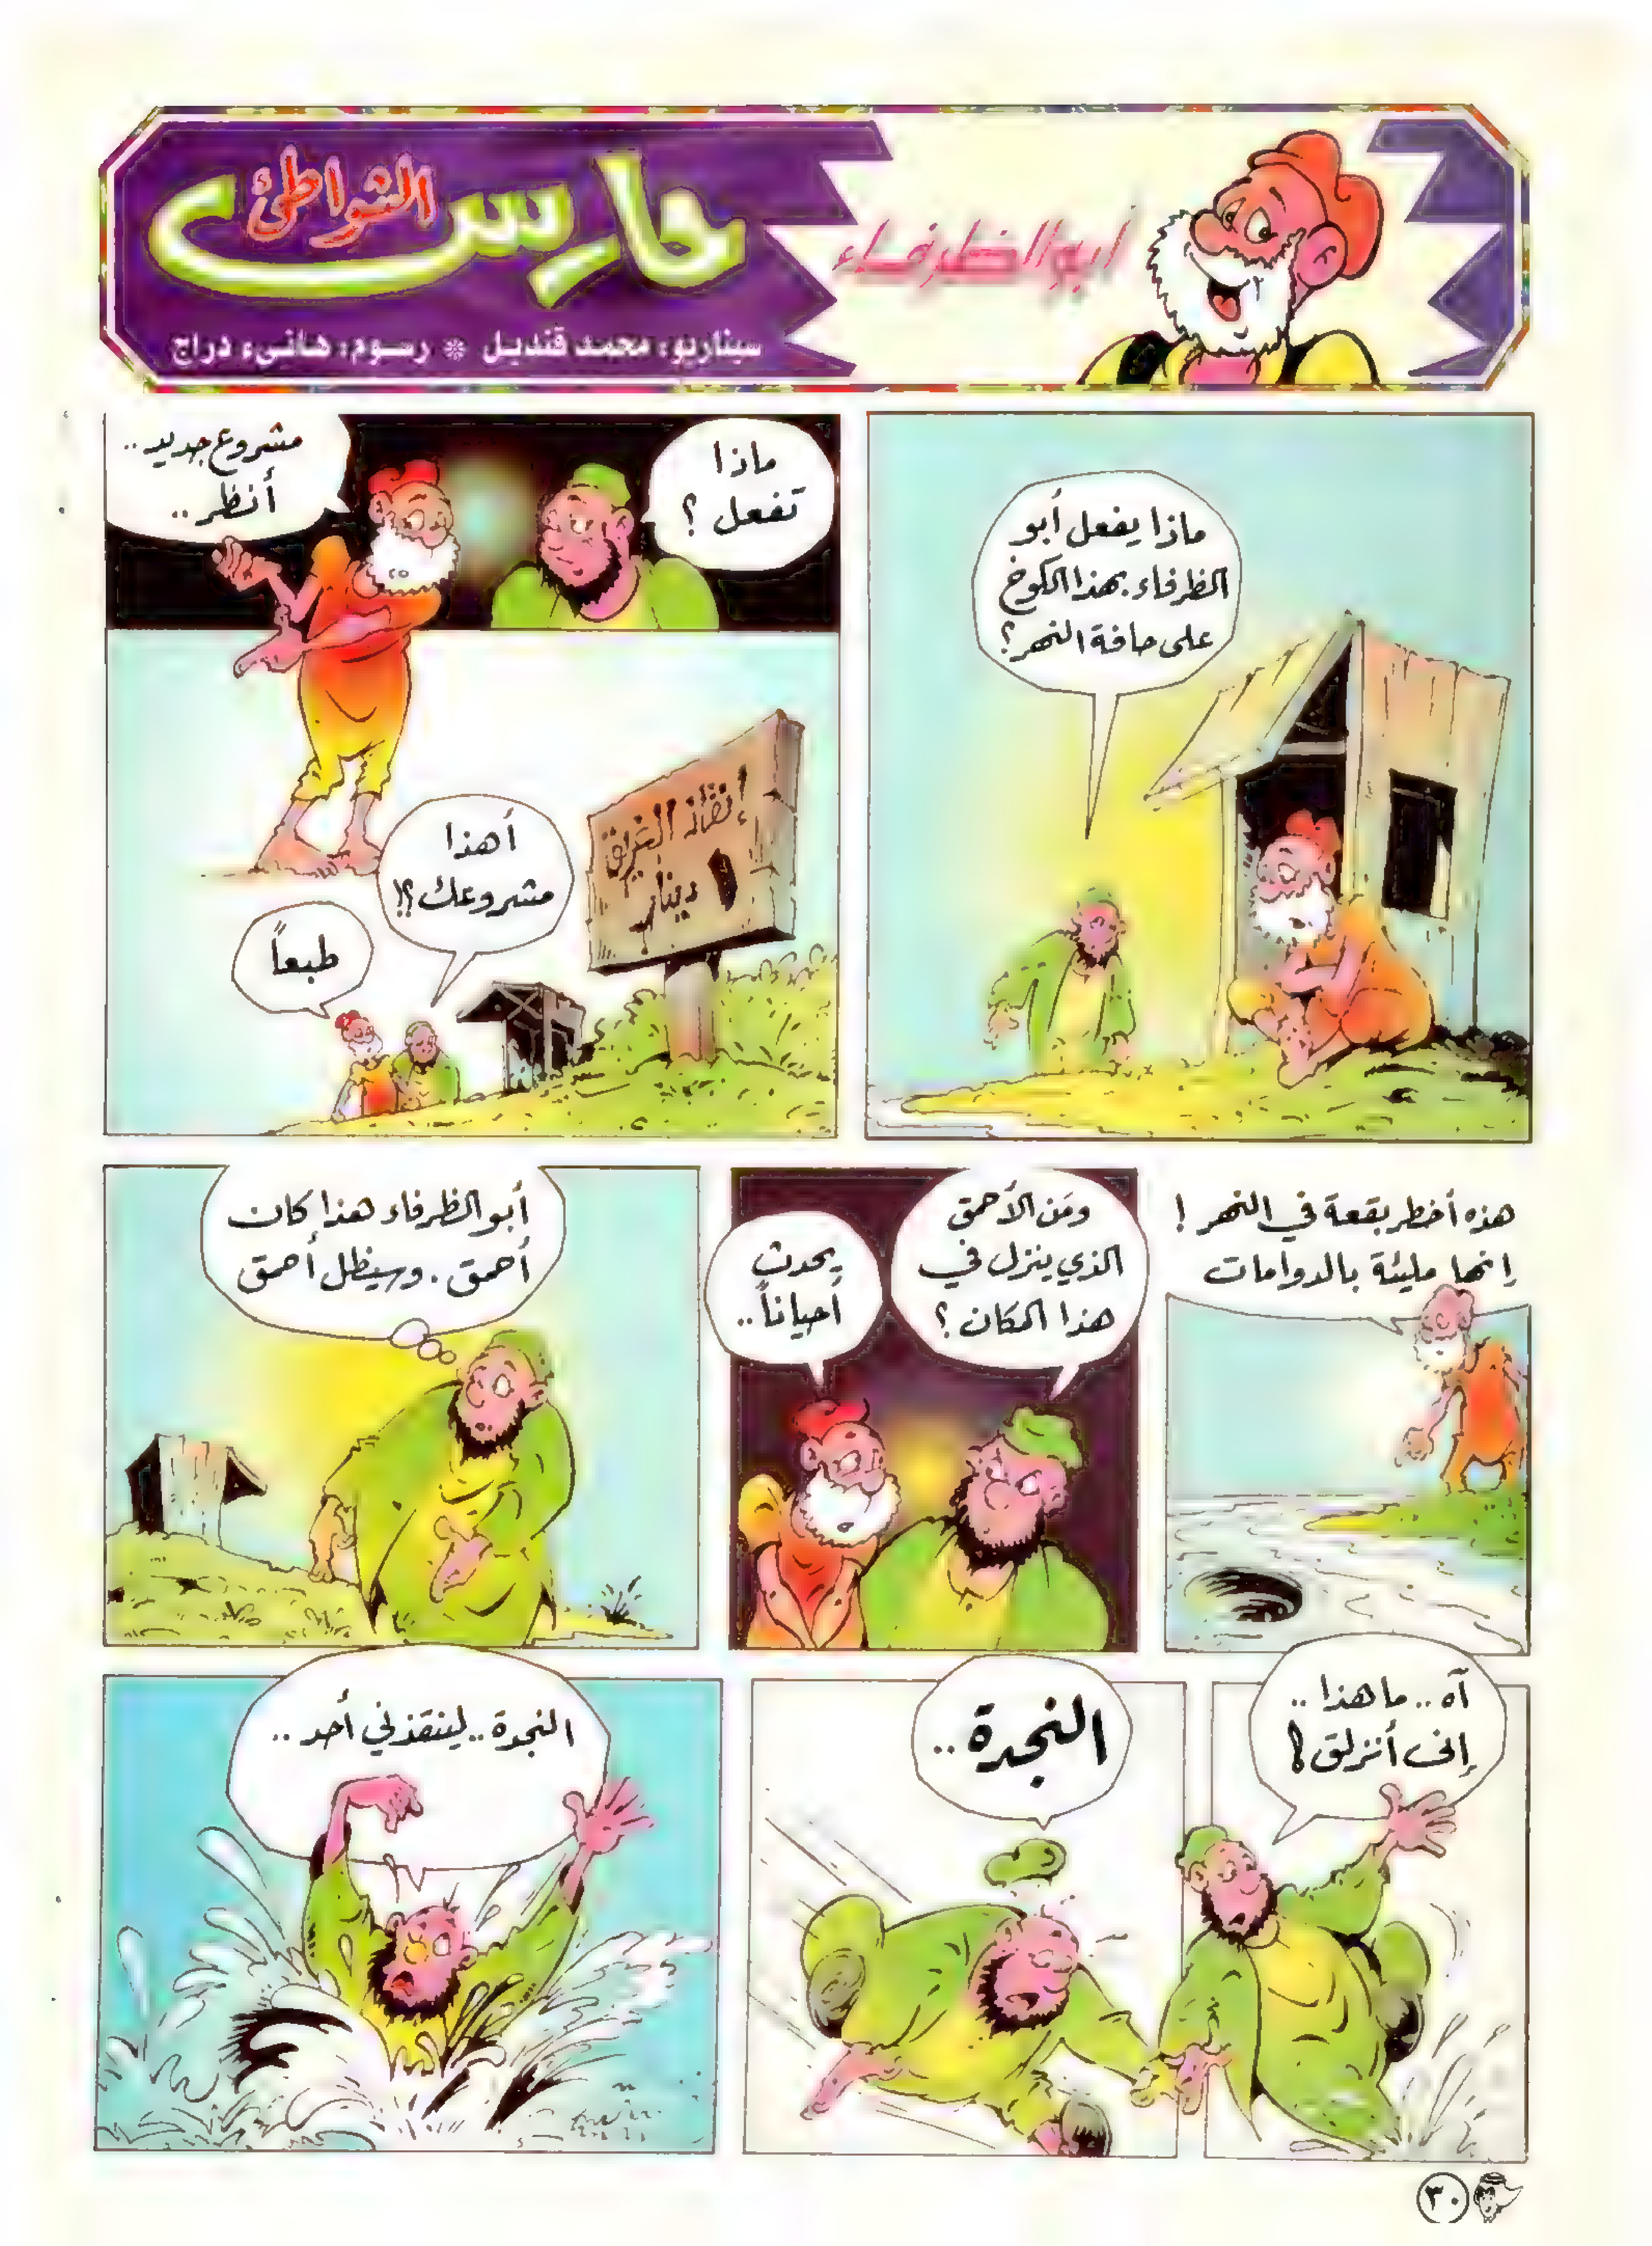 أبو الظرفاء
حارس
الشواطئ
سيناريو: محمد قنديل * رسوم: هانىء دراج
ماذا يفعل أبو
الظرفاء بهذا الكوخ
على حافة النهر؟
ماذا
تفعل ؟
مشروع جديد ..
أنظر ..
إنقاذ الغريق
١ دينار
أهذا
مشروعك؟!
طبعاً
هذه أخطر بقعة في النهر !
إنها مليئة بالدوامات
ومَن الأحمق
الذي ينزل في
هذا المكان ؟
يحدث
أحياناً ..
أبو الظرفاء هذا كان
أحمق . وسيظل أحمق
آه .. ما هذا ..
إنى أنزلق !!
النجدة ..
النجدة .. لينقذني أحد ..
٣٠